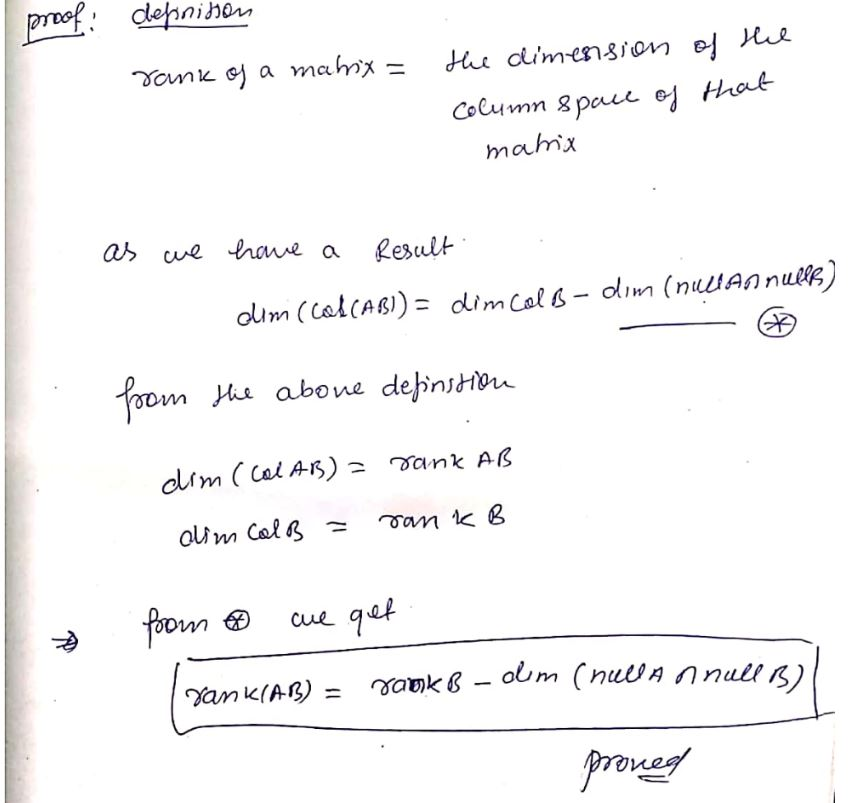 proof: definition
rank of a matrix = the dimension of the
column space of that
matrix
as we have a Result.
dim (Col(AB)) = dim Col B - dim (null A ∩ null B)
⊛
from the above definition
dim (Col AB) = rank AB
dim Col B = rank B
⇒ from ⊛ we get
rank(AB) = rank B - dim (null A ∩ null B)
proved